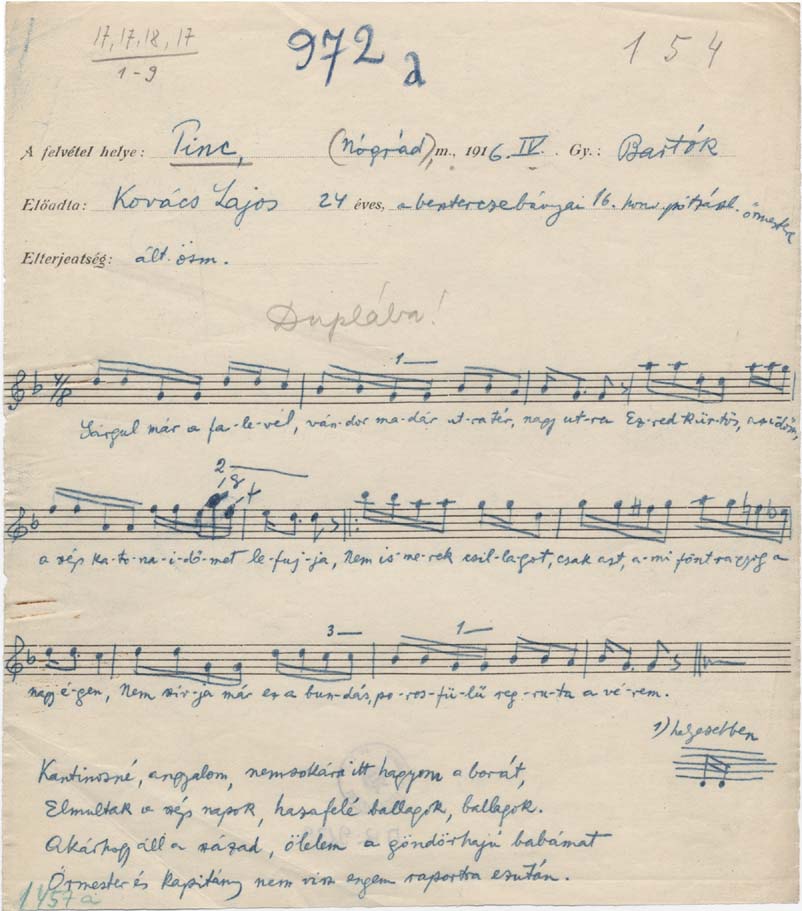 17, 17, 18, 17
1-9
972 a
154
A felvétel helye: Pinc, (Nógrád) m., 1916. IV. Gy.: Bartók
Előadta: Kovács Lajos 24 éves, a beszterczebányai 16. honv. pótzászl. őrmestere
Elterjeatség: ált. ösm.
Duplába!
4/8
1
Sárgul már a fa-le-vél, ván-dor ma-dár ut-ra tér, nagy ut-ra Ez-red kür-tös, az idöm,
2
a szép ka-to-na-i-dő-met le-fuj-ja, Nem is-me-rek csil-la-got, csak azt, a-mi fönt ragyog a
3 1
nagy é-gen, Nem szir-ja már ez a bun-dás, po-ros-fü-lű reg-ru-ta a vé-rem.
1) helyesebben
Kantinosné, angyalom, nemsokára itt hagyom a borát,
Elmultak a szép napok, hazafelé ballagok, ballagok.
Akárhogy áll a század, ölelem a göndörhajú babámat
Őrmester és kapitány nem visz engem raportra ezután.
1457a